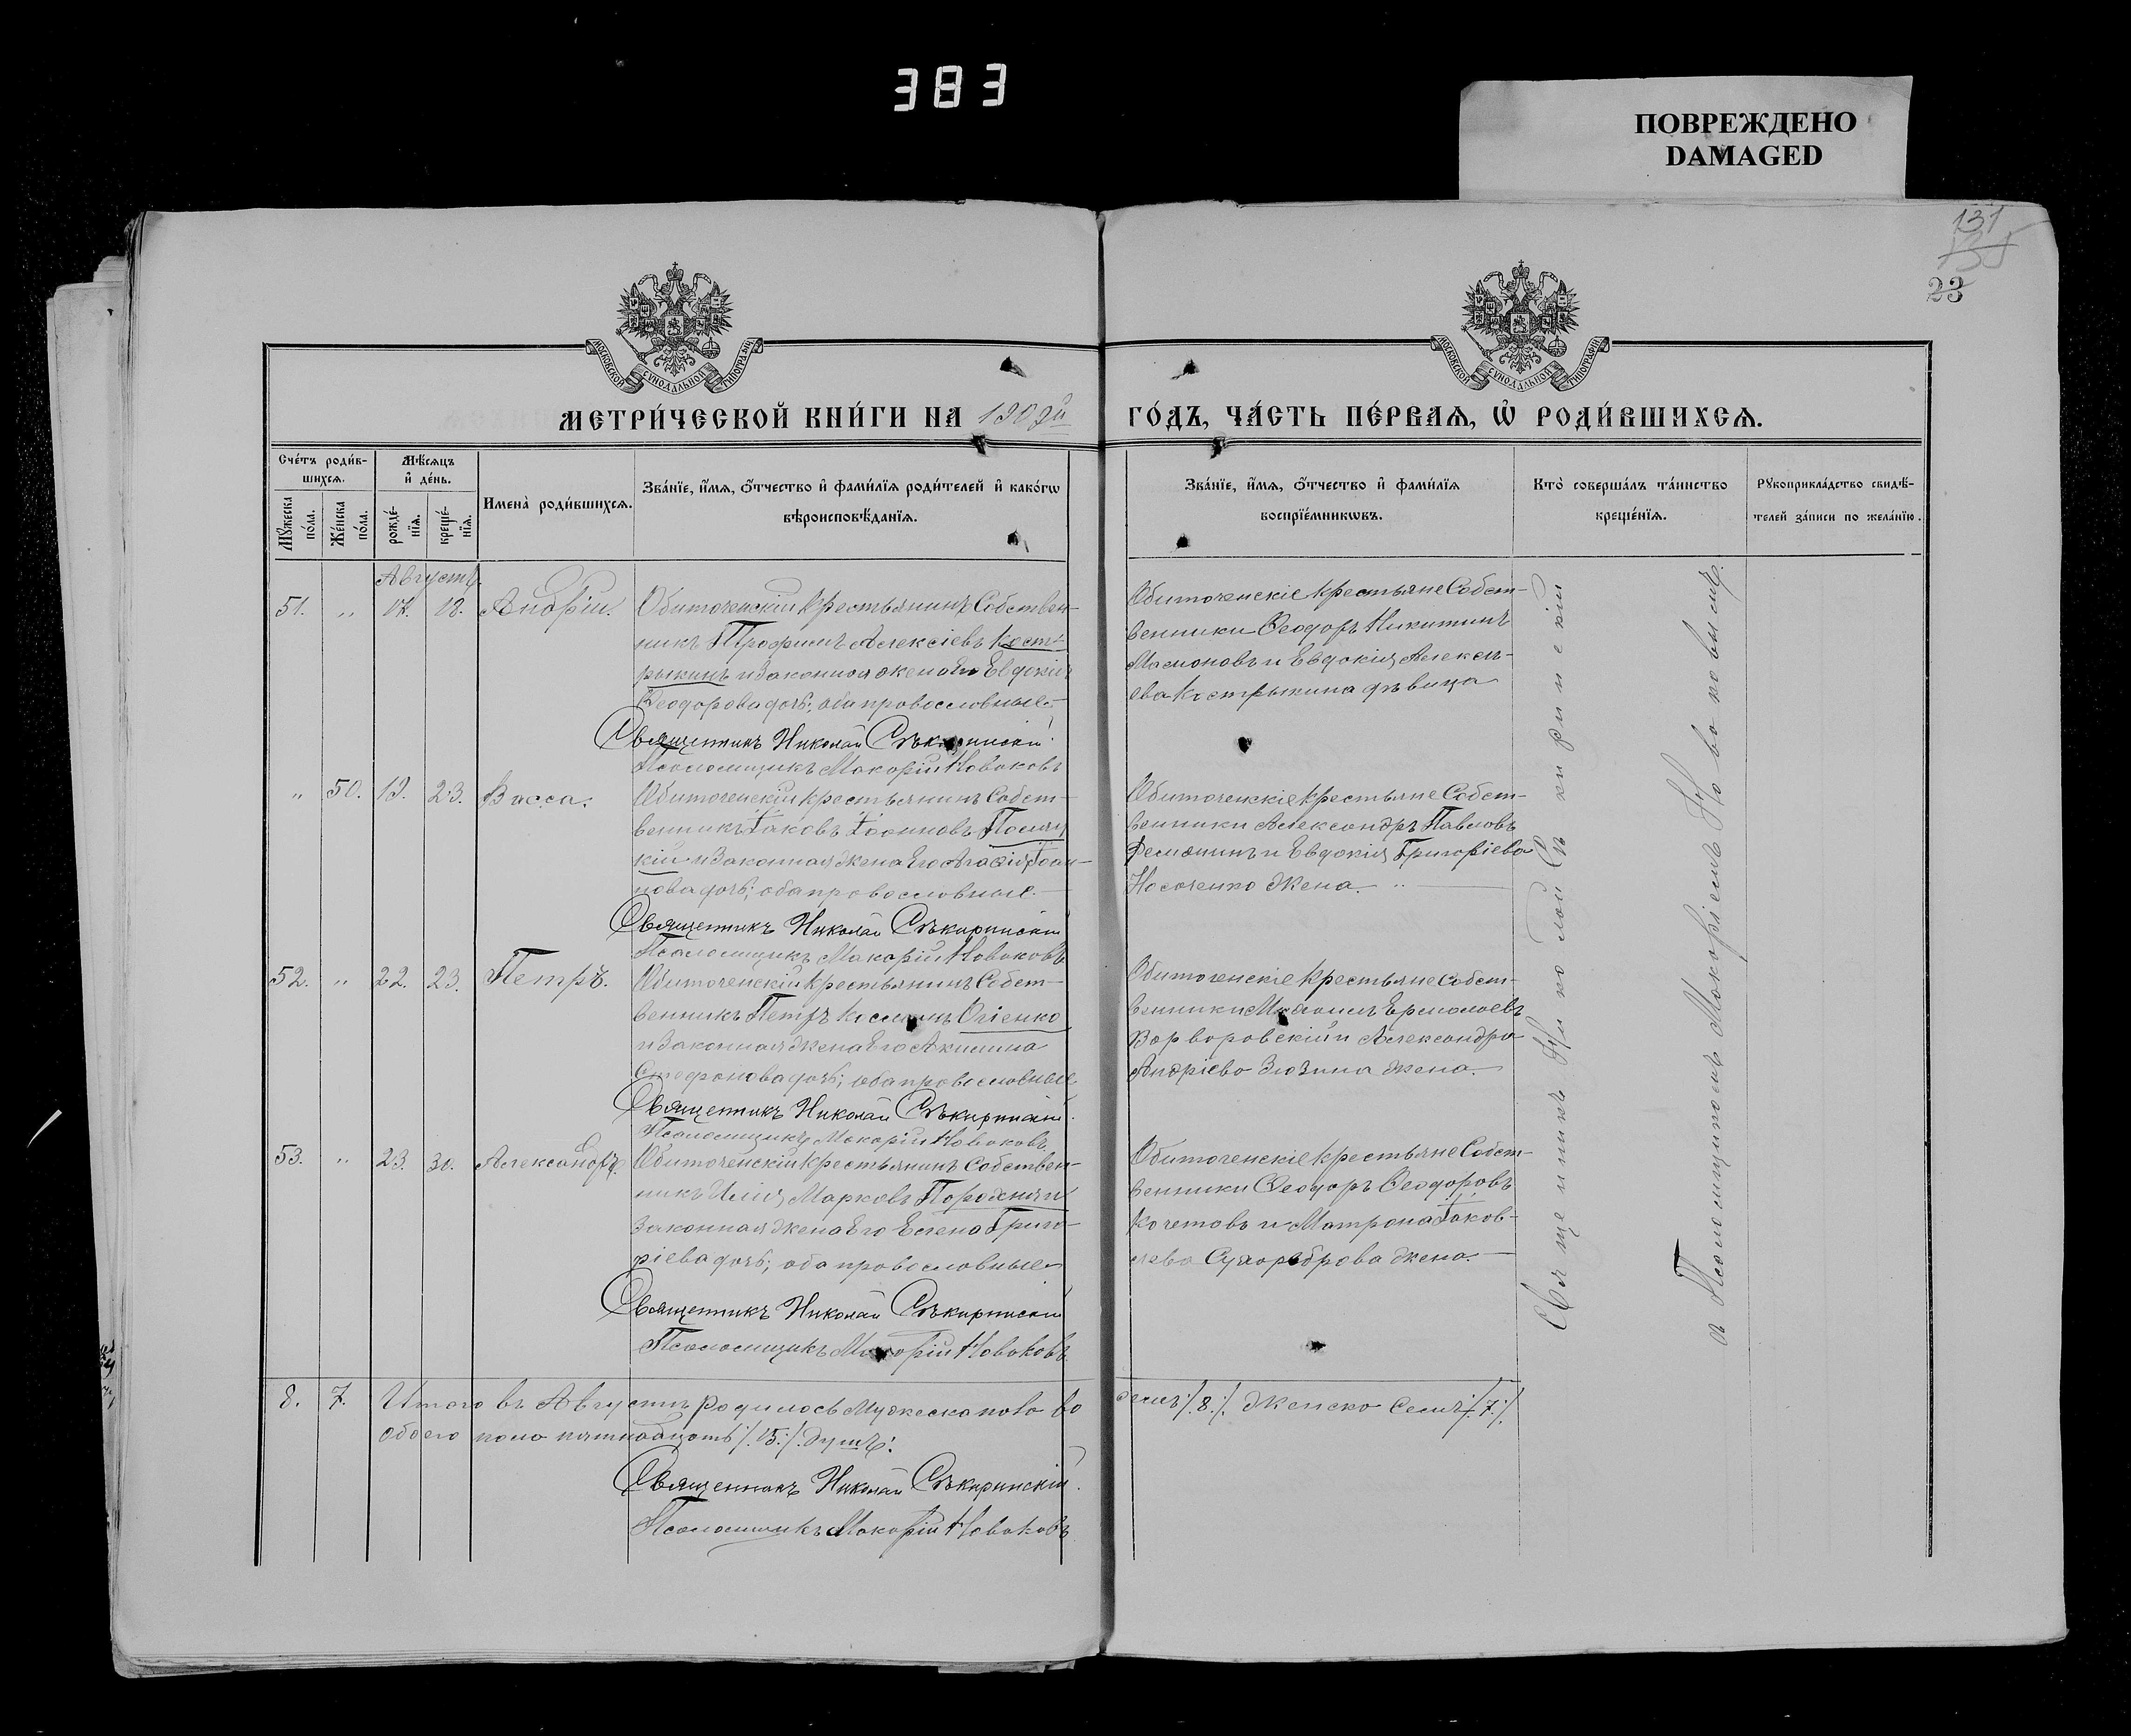 383
ПОВРЕЖДЕНО
DAMAGED
131
23
МОСКОВСКОЙ СУНОДАЛЬНОЙ ТИПОГРАФІИ
МОСКОВСКОЙ СУНОДАЛЬНОЙ ТИПОГРАФІИ
МЕТРИ́ЧЕСКОЙ КНИ́ГИ НА
ГО́ДЪ, ЧА́СТЬ ПЕ́РВАѦ, Ѡ҆ РОДИ́ВШИХСѦ.
Сче́тъ роди́в-
шихсѧ.
Мꙋ́жеска по́ла.
Же́нска по́ла.
Мѣ́сѧцъ
и҆ де́нь.
рожде́-нїѧ.
креще́-нїѧ.
Имена̀ роди́вшихсѧ.
Зва́нїе, и҆́мѧ, ѻ҆́тчество и҆ фами́лїѧ роди́телей и҆ како́гѡ
вѣроисповѣ́данїѧ.
Зва́нїе, и҆́мѧ, ѻ҆́тчество и҆ фами́лїѧ
воспрїе́мникѡвъ.
Кто̀ соверша́лъ та́инство
креще́нїѧ.
Рꙋкоприкла́дство свидѣ́-
телей за́писи по жела́нїю.
Августъ.
51. „ 17. 18. Андрій. Обиточенскій крестьянинъ Собствен-
никъ Трофимъ Алексіевъ Кост-
рыкинъ и Законная жена Его Евдокія
Ѳеодорова дочь; оба православные
Священникъ Николай Сѣкиринскій.
Псаломщикъ Макарій Новаковъ
Обиточенскіе крестьяне Собст-
венники Ѳеодоръ Никитинъ
Мамоновъ и Евдокія Алексі-
ева Кострыкина дѣвица
„ 50. 19. 23. Васса. Обиточенскій крестьянинъ Собст-
венникъ Іаковъ Іоанновъ
кій и Законная жена Его Агафія Іоан-
нова дочь; оба православные.
Священникъ Николай Сѣкиринскій
Псаломщикъ Макарій Новаковъ
Обиточенскіе крестьяне Собст-
венники Александръ Павловъ
и Евдокія Григоріева
Носаченко жена. „
52. „ 22. 23. Петръ. Обиточенскій крестьянинъ Собст-
венникъ Петръ Косминъ Огіенко
и Законная жена Его Акилина
Стефанова дочь; оба православные
Священникъ Николай Сѣкиринскій.
Псаломщикъ Макарій Новаковъ
Обиточенскіе крестьяне Собст-
венники Михаилъ Ермолаевъ
Варваровскій и Александра
Андріева Зюзина жена.
53. „ 23. 30. Александръ. Обиточенскій крестьянинъ Собствен-
никъ Илія Марковъ Порохня и
Законная жена Его Елена Григо-
ріева дочь; оба православные
Священникъ Николай Сѣкиринскій
Псаломщикъ Макарій Новаковъ
Обиточенскіе крестьяне Собст-
венники Ѳеодоръ Ѳеодоровъ
Кочетовъ и Матрона Іаков-
лева Сухореброва жена.
Священникъ Николай Сѣкиринскій
съ Псаломщикомъ Макаріемъ Новаковымъ.
8. 7. Итого въ Августѣ родилось Мужеска пола во
семь /.8./. Женска Семь /.7./.
обоего пола пятнадцать /.15./. душъ.
Священникъ Николай Сѣкиринскій.
Псаломщикъ Макарій Новаковъ